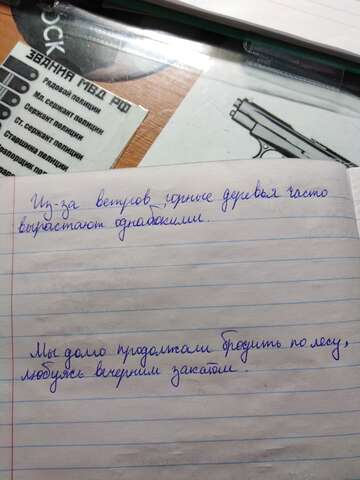 ОСК
ЗВАНИЯ МВД РФ
Рядовой полиции
Мл. сержант полиции
Сержант полиции
Ст. сержант полиции
Старшина полиции
Прапорщик полиции
Из-за ветров горные деревья часто
вырастают однабокими.
Мы долго продолжали бродить по лесу,
любуясь вечерним закатом.